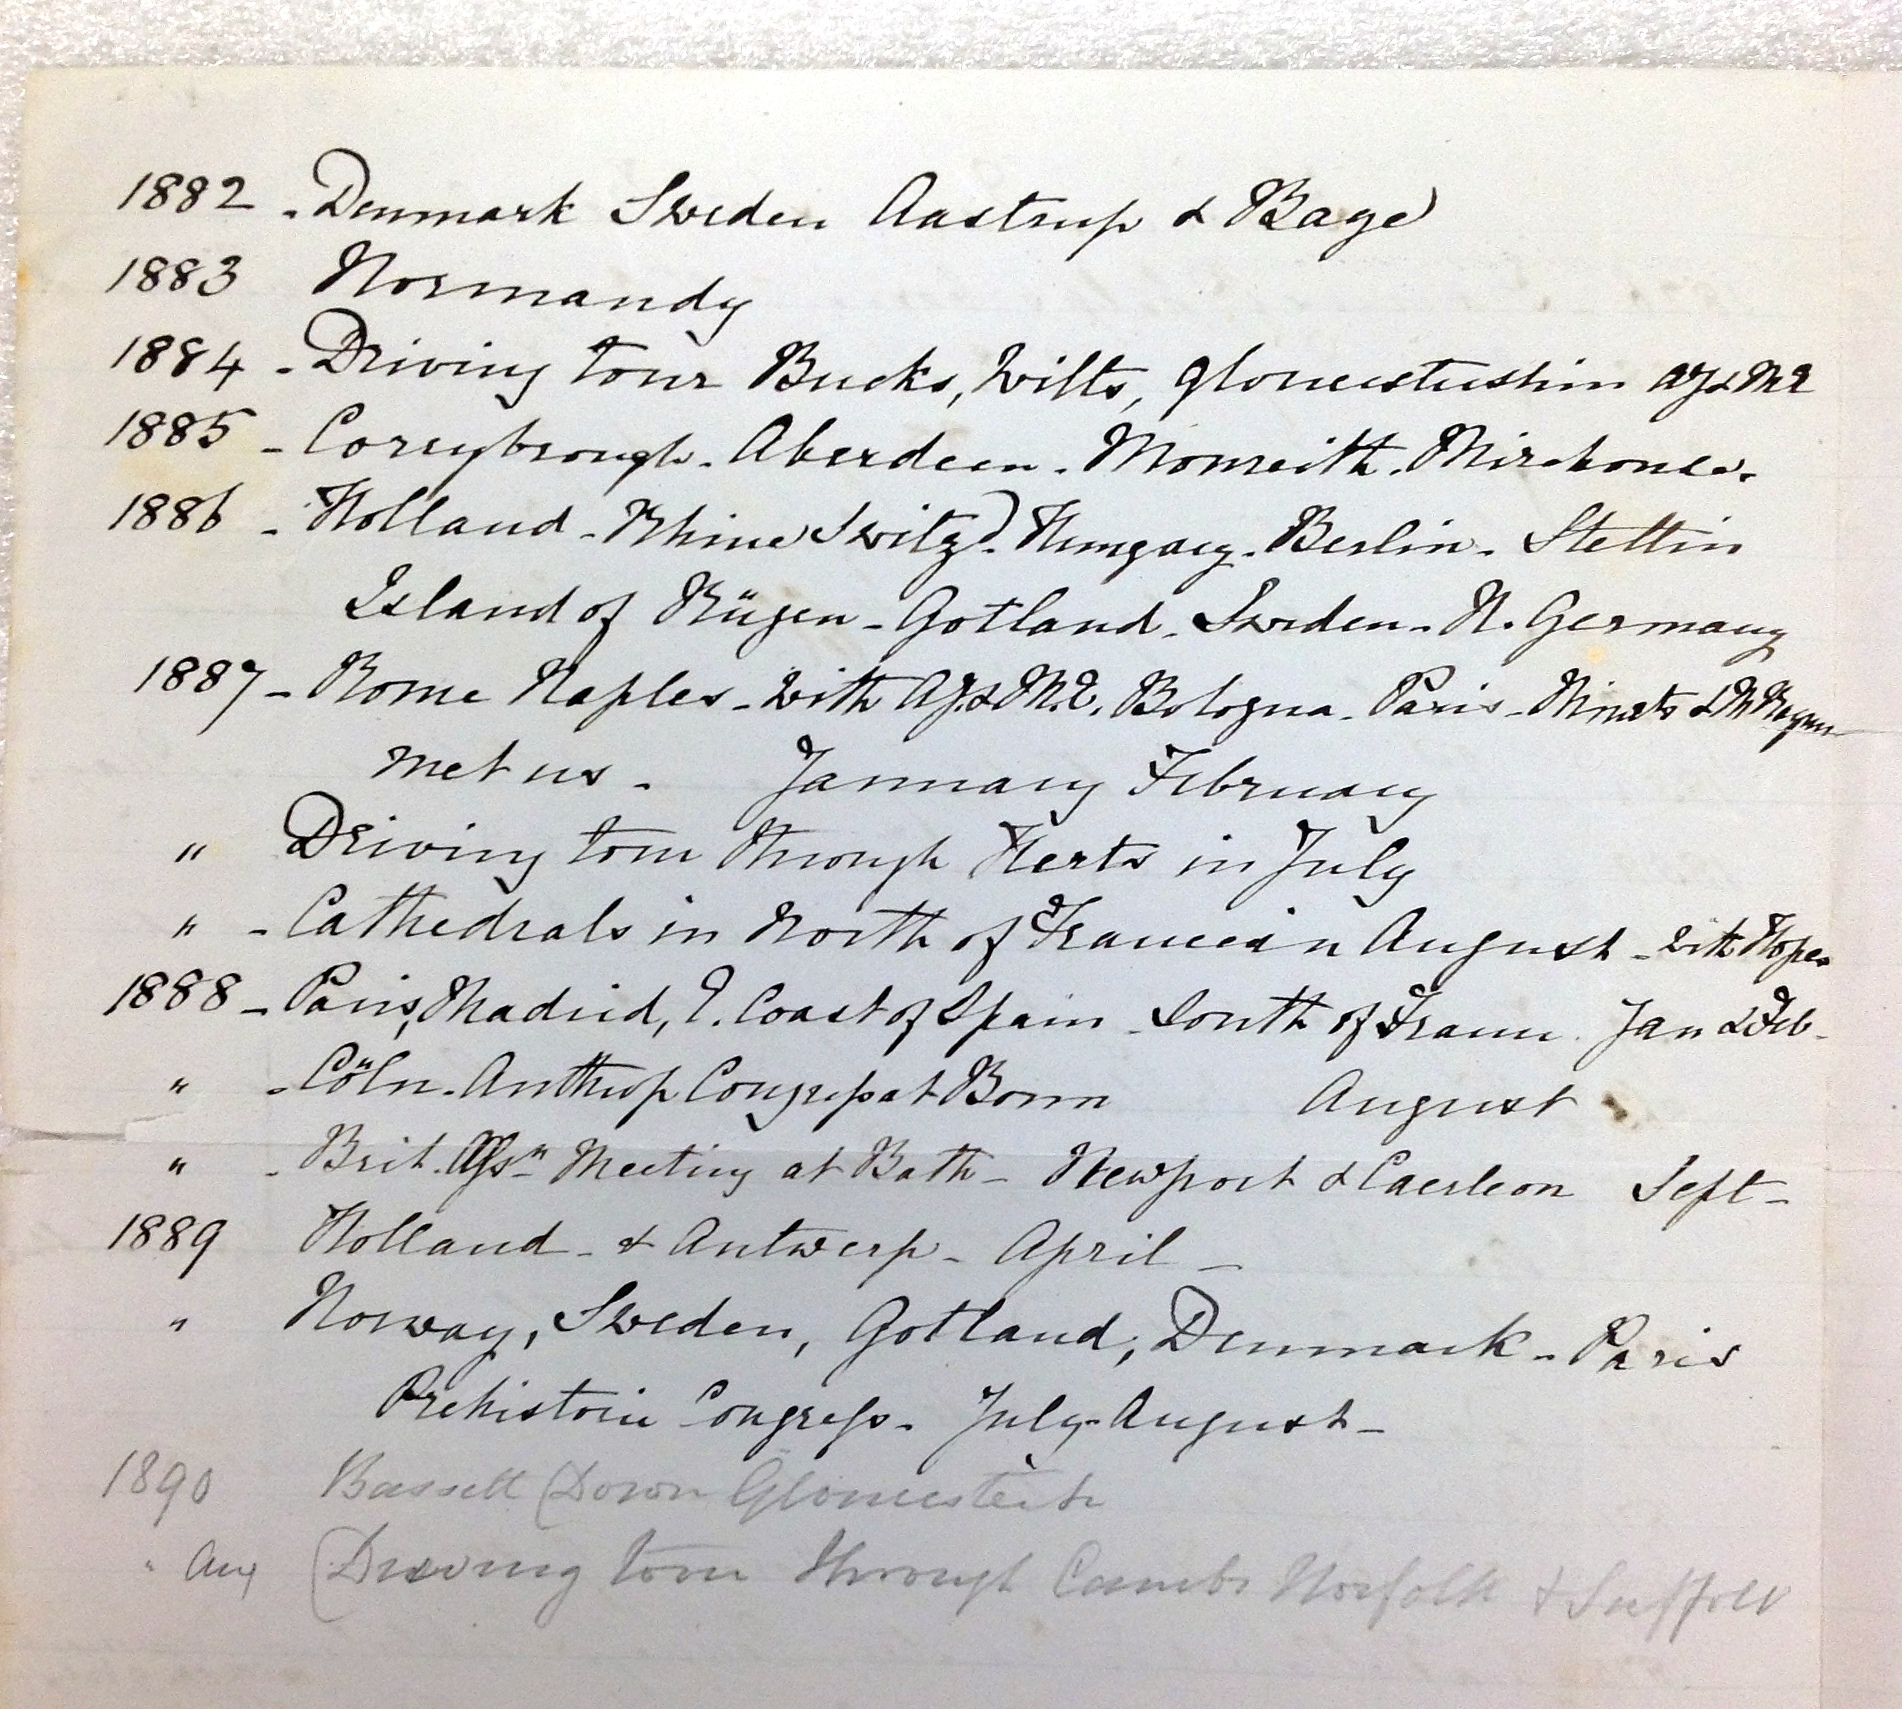 1882 - Denmark Sweden Aastrup & Bage
1883 Normandy
1884 - Driving tour Bucks, Wilts, Gloucestershire AJ & ME
1885 - Corrybrough - Aberdeen - Monreith - Mirehouse.
1886 - Holland - Rhine Switzd - Hungary - Berlin - Stettin
Island of Rügen - Gotland - Sweden - N. Germany
1887 - Rome Naples - with AJ. & M.E. Bologna - Paris - &
met us - January February
" Driving tour through Herts in July
" - Cathedrals in North of France in August - with Hopes
1888 - Paris, Madrid, E. Coast of Spain - South of France. Jan & Feb -
" - Cöln - Anthrop Congress at Bonn August
" - Brit. Assn Meeting at Bath - Newport & Caerleon Sept -
1889 Holland - & Antwerp - April -
" Norway, Sweden, Gotland, Denmark - Paris
Prehistoric Congress - July - August -
1890 Bassett Down
" Aug Driving tour through Cambs Norfolk & Suffolk